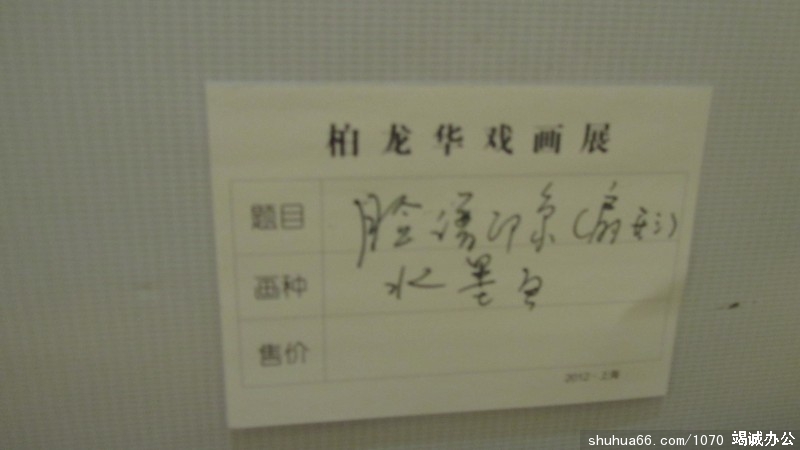 柏龙华戏画展
题目 脸谱印象(扇形)
画种 水墨画
售价
2012·上海
shuhua66.com/1070 竭诚办公